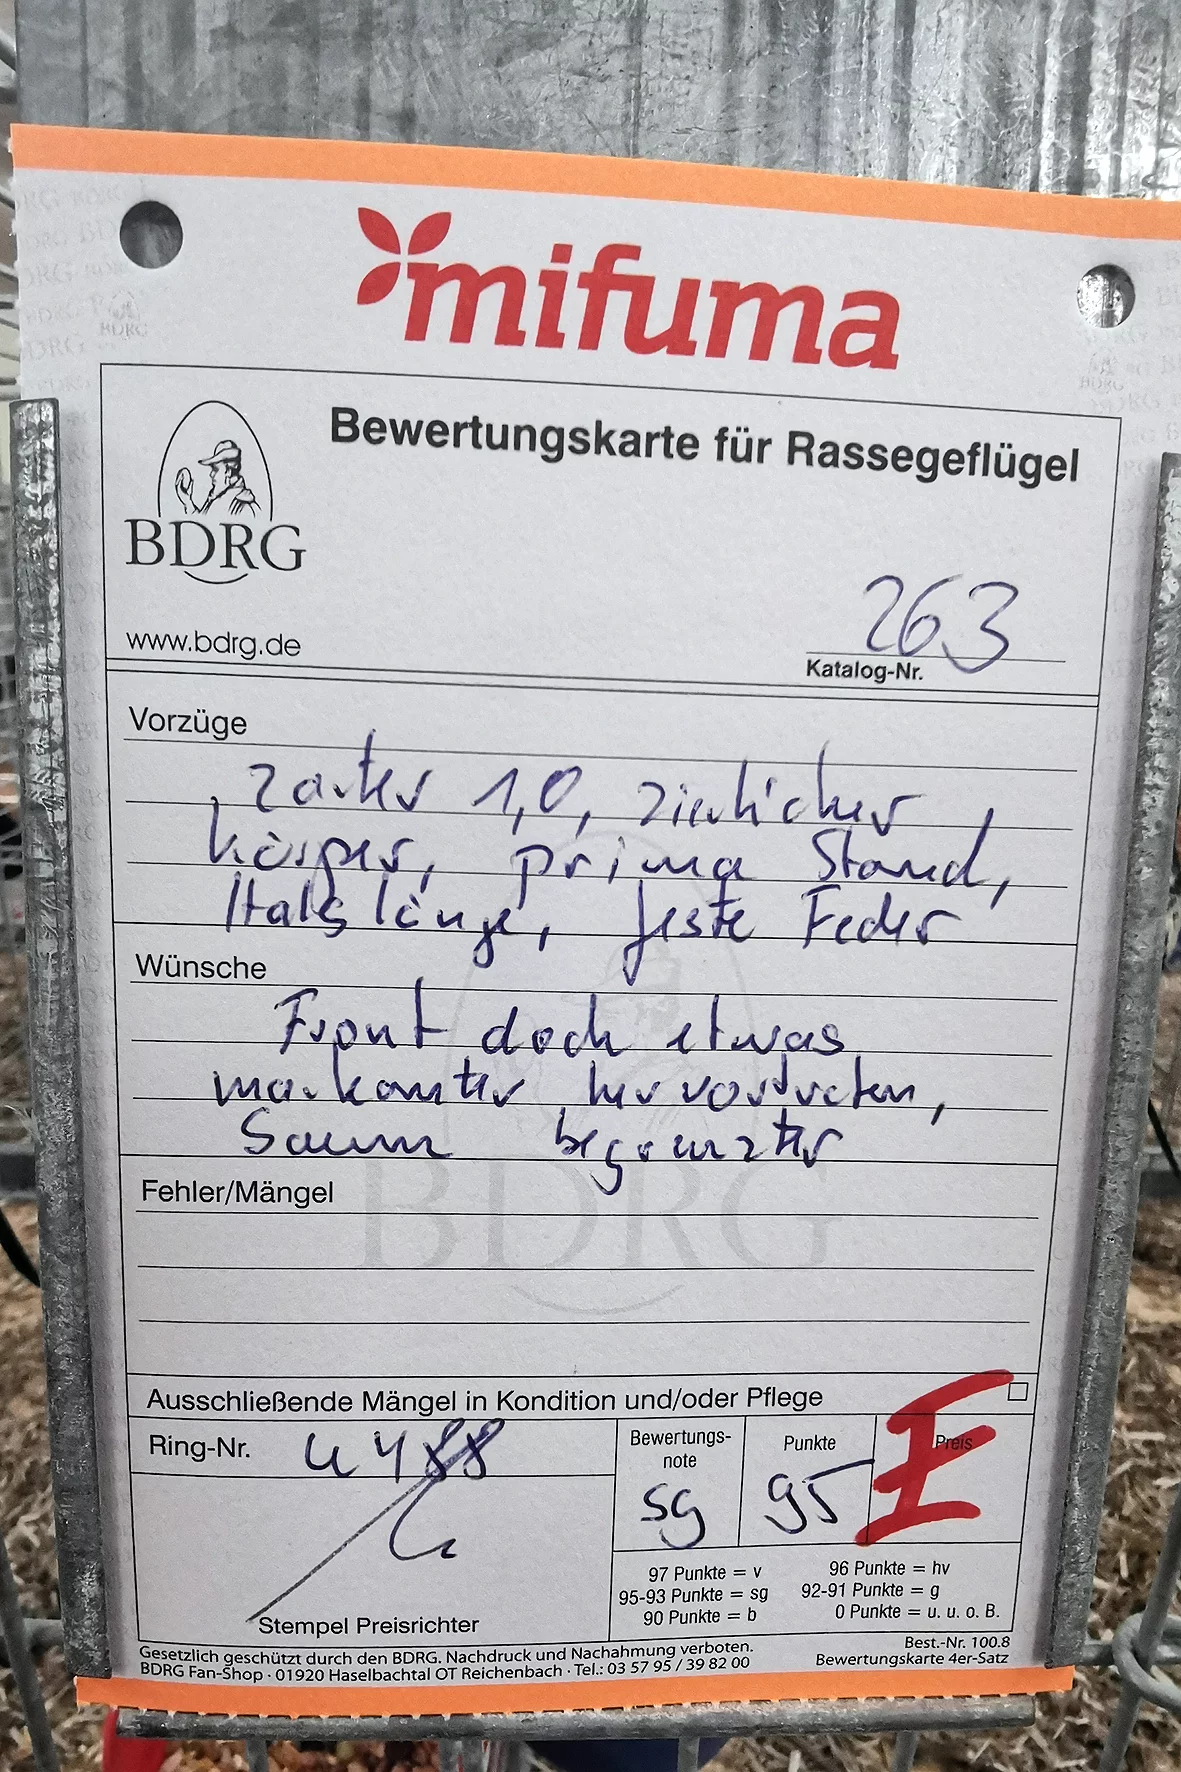 mifuma
Bewertungskarte für Rassegeflügel
BDRG
www.bdrg.de
263
Katalog-Nr.
Vorzüge
zarter 1,0, zierlicher
Körper, prima Stand,
Halslänge, feste Feder
Wünsche
Front doch etwas
markanter hervortreten,
Saum begrenzter
Fehler/Mängel
BDRG
Ausschließende Mängel in Kondition und/oder Pflege
Ring-Nr. 4488
Bewertungs-
note
sg
Punkte
95
Preis
E
Stempel Preisrichter
97 Punkte = v 96 Punkte = hv
95-93 Punkte = sg 92-91 Punkte = g
90 Punkte = b 0 Punkte = u. u. o. B.
Gesetzlich geschützt durch den BDRG. Nachdruck und Nachahmung verboten.
BDRG Fan-Shop · 01920 Haselbachtal OT Reichenbach · Tel.: 03 57 95 / 39 82 00
Best.-Nr. 100.8
Bewertungskarte 4er-Satz